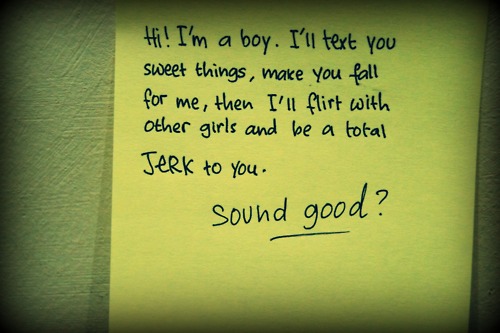 Hi! I'm a boy. I'll text you
sweet things, make you fall
for me, then I'll flirt with
other girls and be a total
JERK to you.
sound good?